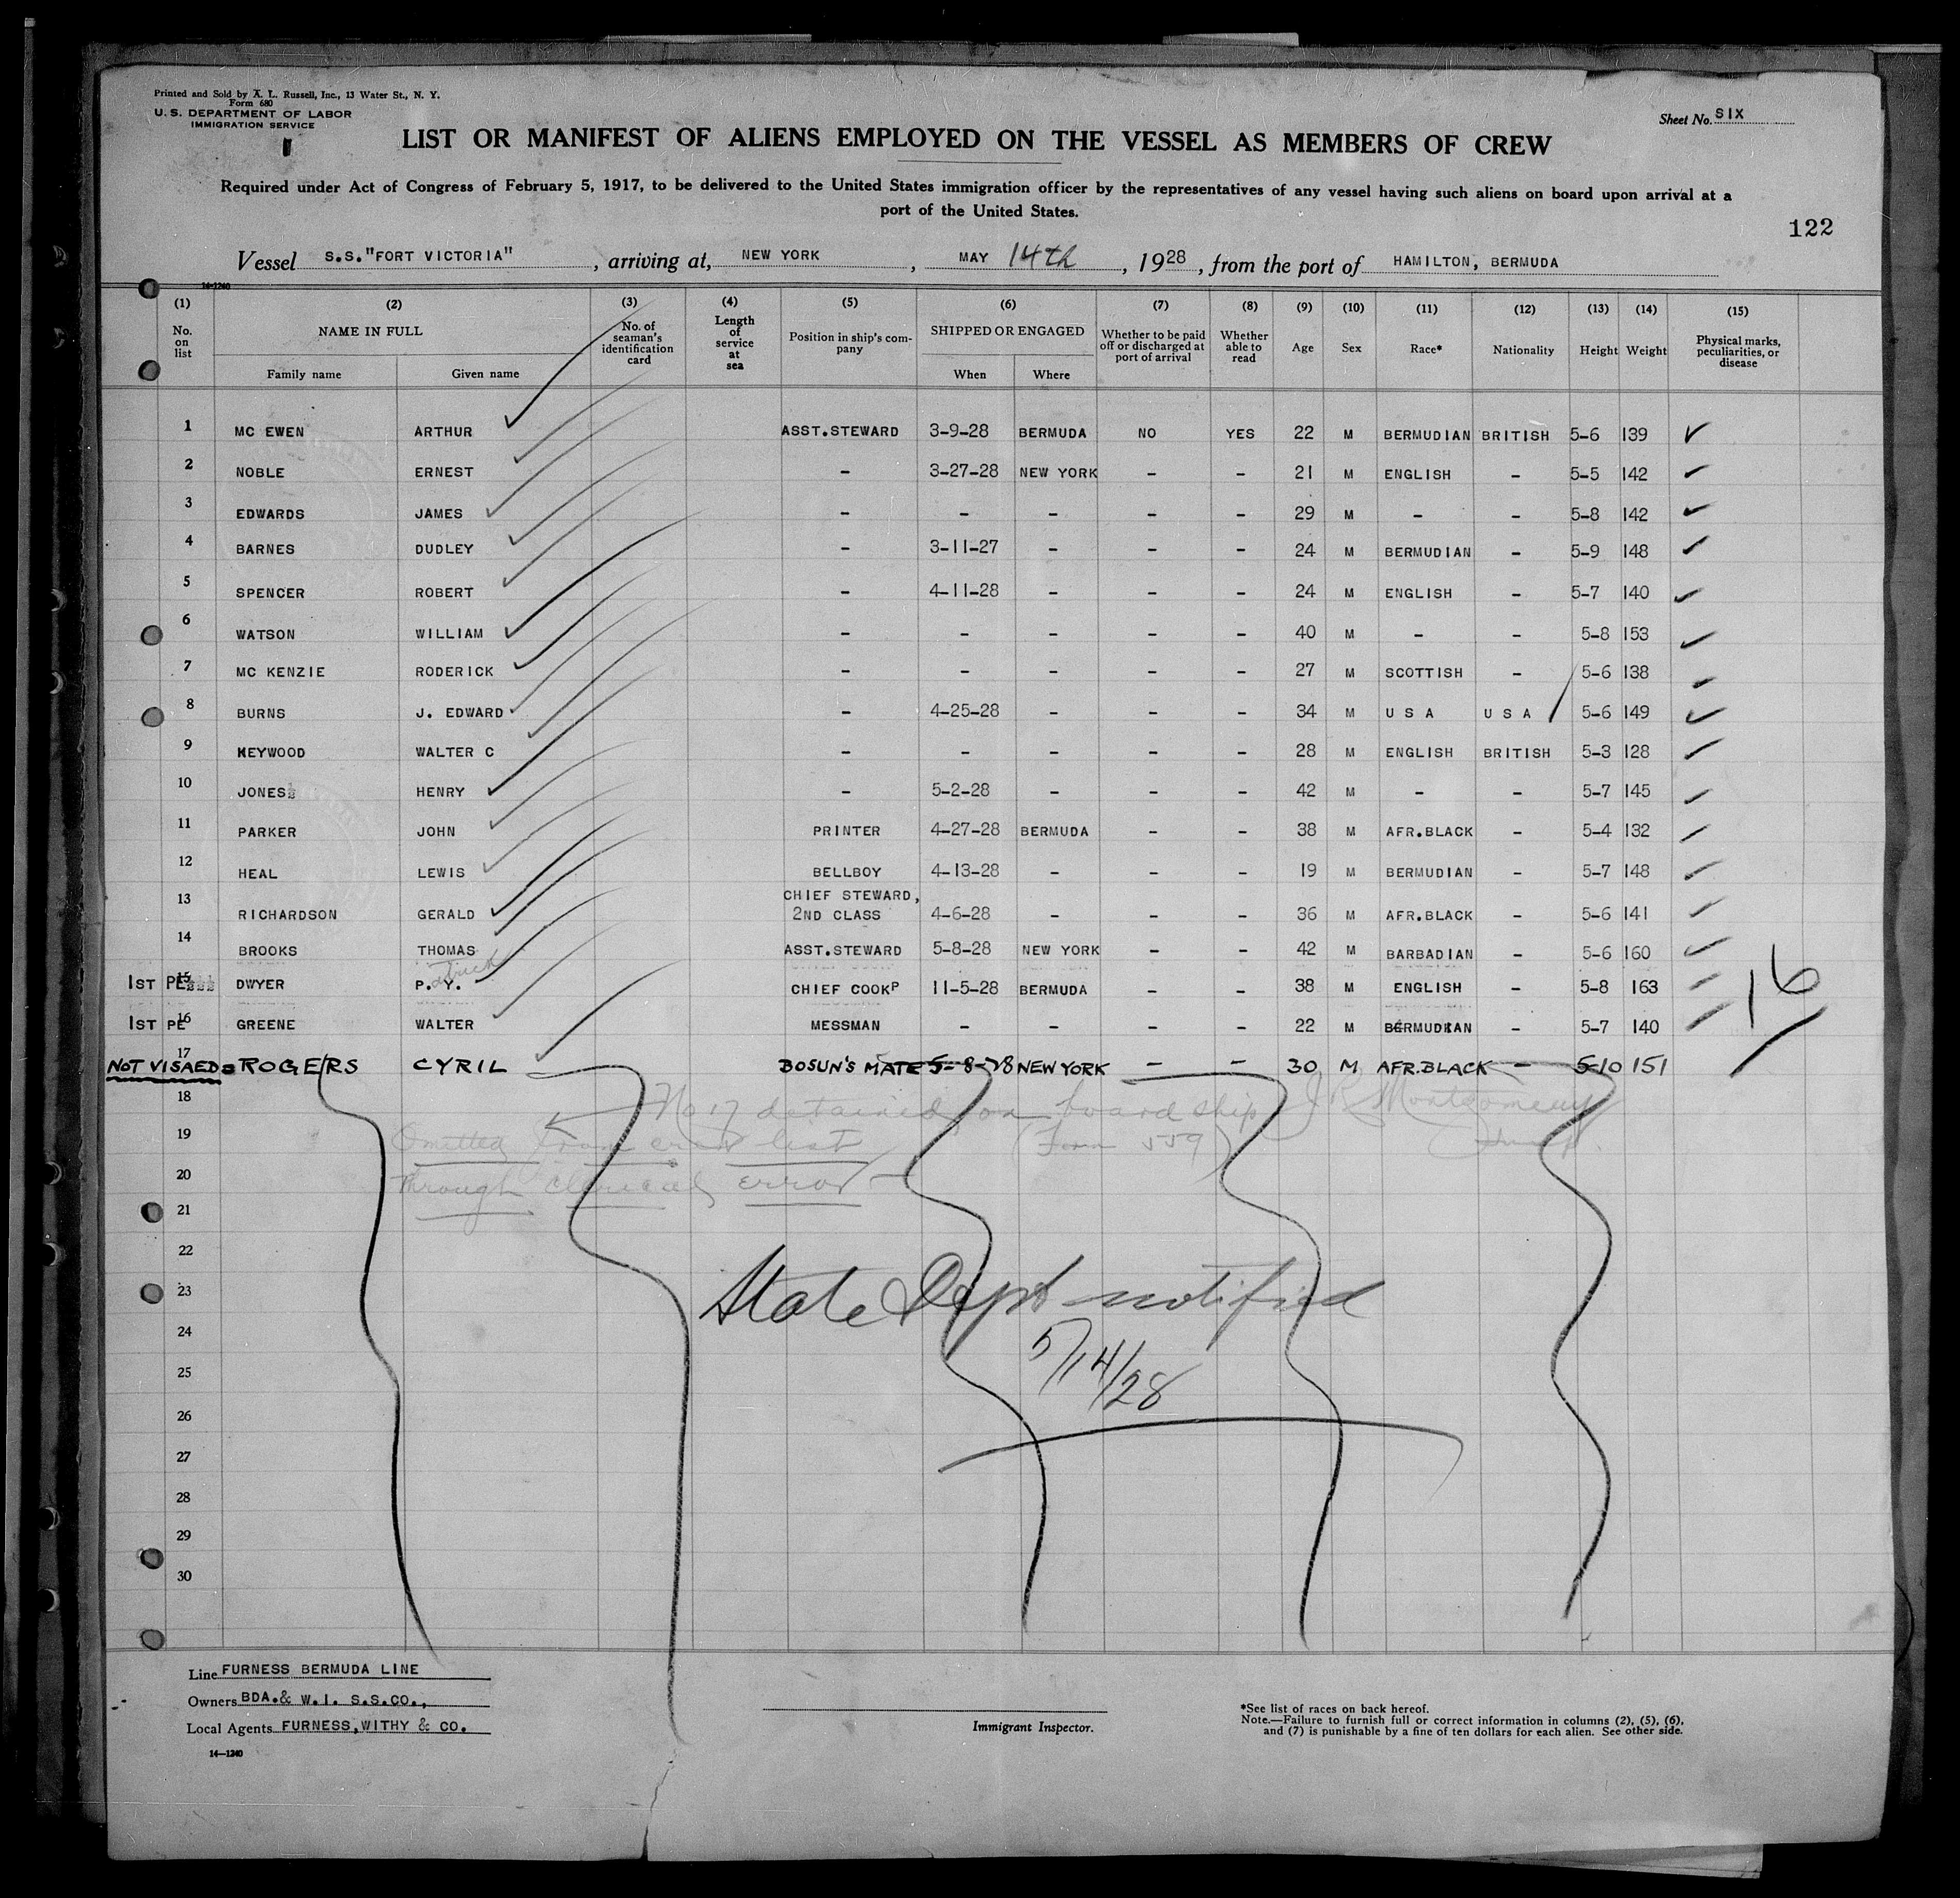 Printed and Sold by A. L. Russell, Inc., 13 Water St., N. Y.
Form 680
U. S. DEPARTMENT OF LABOR
IMMIGRATION SERVICE
Sheet No. SIX
LIST OR MANIFEST OF ALIENS EMPLOYED ON THE VESSEL AS MEMBERS OF CREW
Required under Act of Congress of February 5, 1917, to be delivered to the United States immigration officer by the representatives of any vessel having such aliens on board upon arrival at a
port of the United States.
122
Vessel S.S."FORT VICTORIA", arriving at, NEW YORK, MAY 14th, 1928, from the port of HAMILTON, BERMUDA
14-1240
(1) (2) (3) (4) (5) (6) (7) (8) (9) (10) (11) (12) (13) (14) (15)
No. on list NAME IN FULL Family name Given name No. of seaman's identification card Length of service at sea Position in ship's company SHIPPED OR ENGAGED When Where Whether to be paid off or discharged at port of arrival Whether able to read Age Sex Race* Nationality Height Weight Physical marks, peculiarities, or disease
1 MC EWEN ARTHUR ASST.STEWARD 3-9-28 BERMUDA NO YES 22 M BERMUDIAN BRITISH 5-6 139
2 NOBLE ERNEST - 3-27-28 NEW YORK - - 21 M ENGLISH - 5-5 142
3 EDWARDS JAMES - - - - - 29 M - - 5-8 142
4 BARNES DUDLEY - 3-11-27 - - - 24 M BERMUDIAN - 5-9 148
5 SPENCER ROBERT - 4-11-28 - - - 24 M ENGLISH - 5-7 140
6 WATSON WILLIAM - - - - - 40 M - - 5-8 153
7 MC KENZIE RODERICK - - - - - 27 M SCOTTISH - 5-6 138
8 BURNS J. EDWARD - 4-25-28 - - - 34 M U S A U S A 5-6 149
9 HEYWOOD WALTER C - - - - - 28 M ENGLISH BRITISH 5-3 128
10 JONES HENRY - 5-2-28 - - - 42 M - - 5-7 145
11 PARKER JOHN PRINTER 4-27-28 BERMUDA - - 38 M AFR.BLACK - 5-4 132
12 HEAL LEWIS BELLBOY 4-13-28 - - - 19 M BERMUDIAN - 5-7 148
13 RICHARDSON GERALD CHIEF STEWARD, 2ND CLASS 4-6-28 - - - 36 M AFR.BLACK - 5-6 141
14 BROOKS THOMAS ASST.STEWARD 5-8-28 NEW YORK - - 42 M BARBADIAN - 5-6 160
1ST PE 15 DWYER P. Y. CHIEF COOK 11-5-28 BERMUDA - - 38 M ENGLISH - 5-8 163
1ST PE 16 GREENE WALTER MESSMAN - - - - 22 M BERMUDIAN - 5-7 140
16
17
NOT VISAED = ROGERS CYRIL BOSUN'S MATE 5-8-28 NEW YORK - - 30 M AFR.BLACK - 5-10 151
18 No 17 detained on board ship J R Montgomery
19 Omitted from crew list (Form 559)
20 through clerical error
21
22
23 State Dept notified
24
25 5/14/28
26
27
28
29
30
Line FURNESS BERMUDA LINE
Owners BDA.& W.I. S.S.CO.,
Local Agents FURNESS, WITHY & CO.
14—1240
Immigrant Inspector.
*See list of races on back hereof.
Note.—Failure to furnish full or correct information in columns (2), (5), (6),
and (7) is punishable by a fine of ten dollars for each alien. See other side.